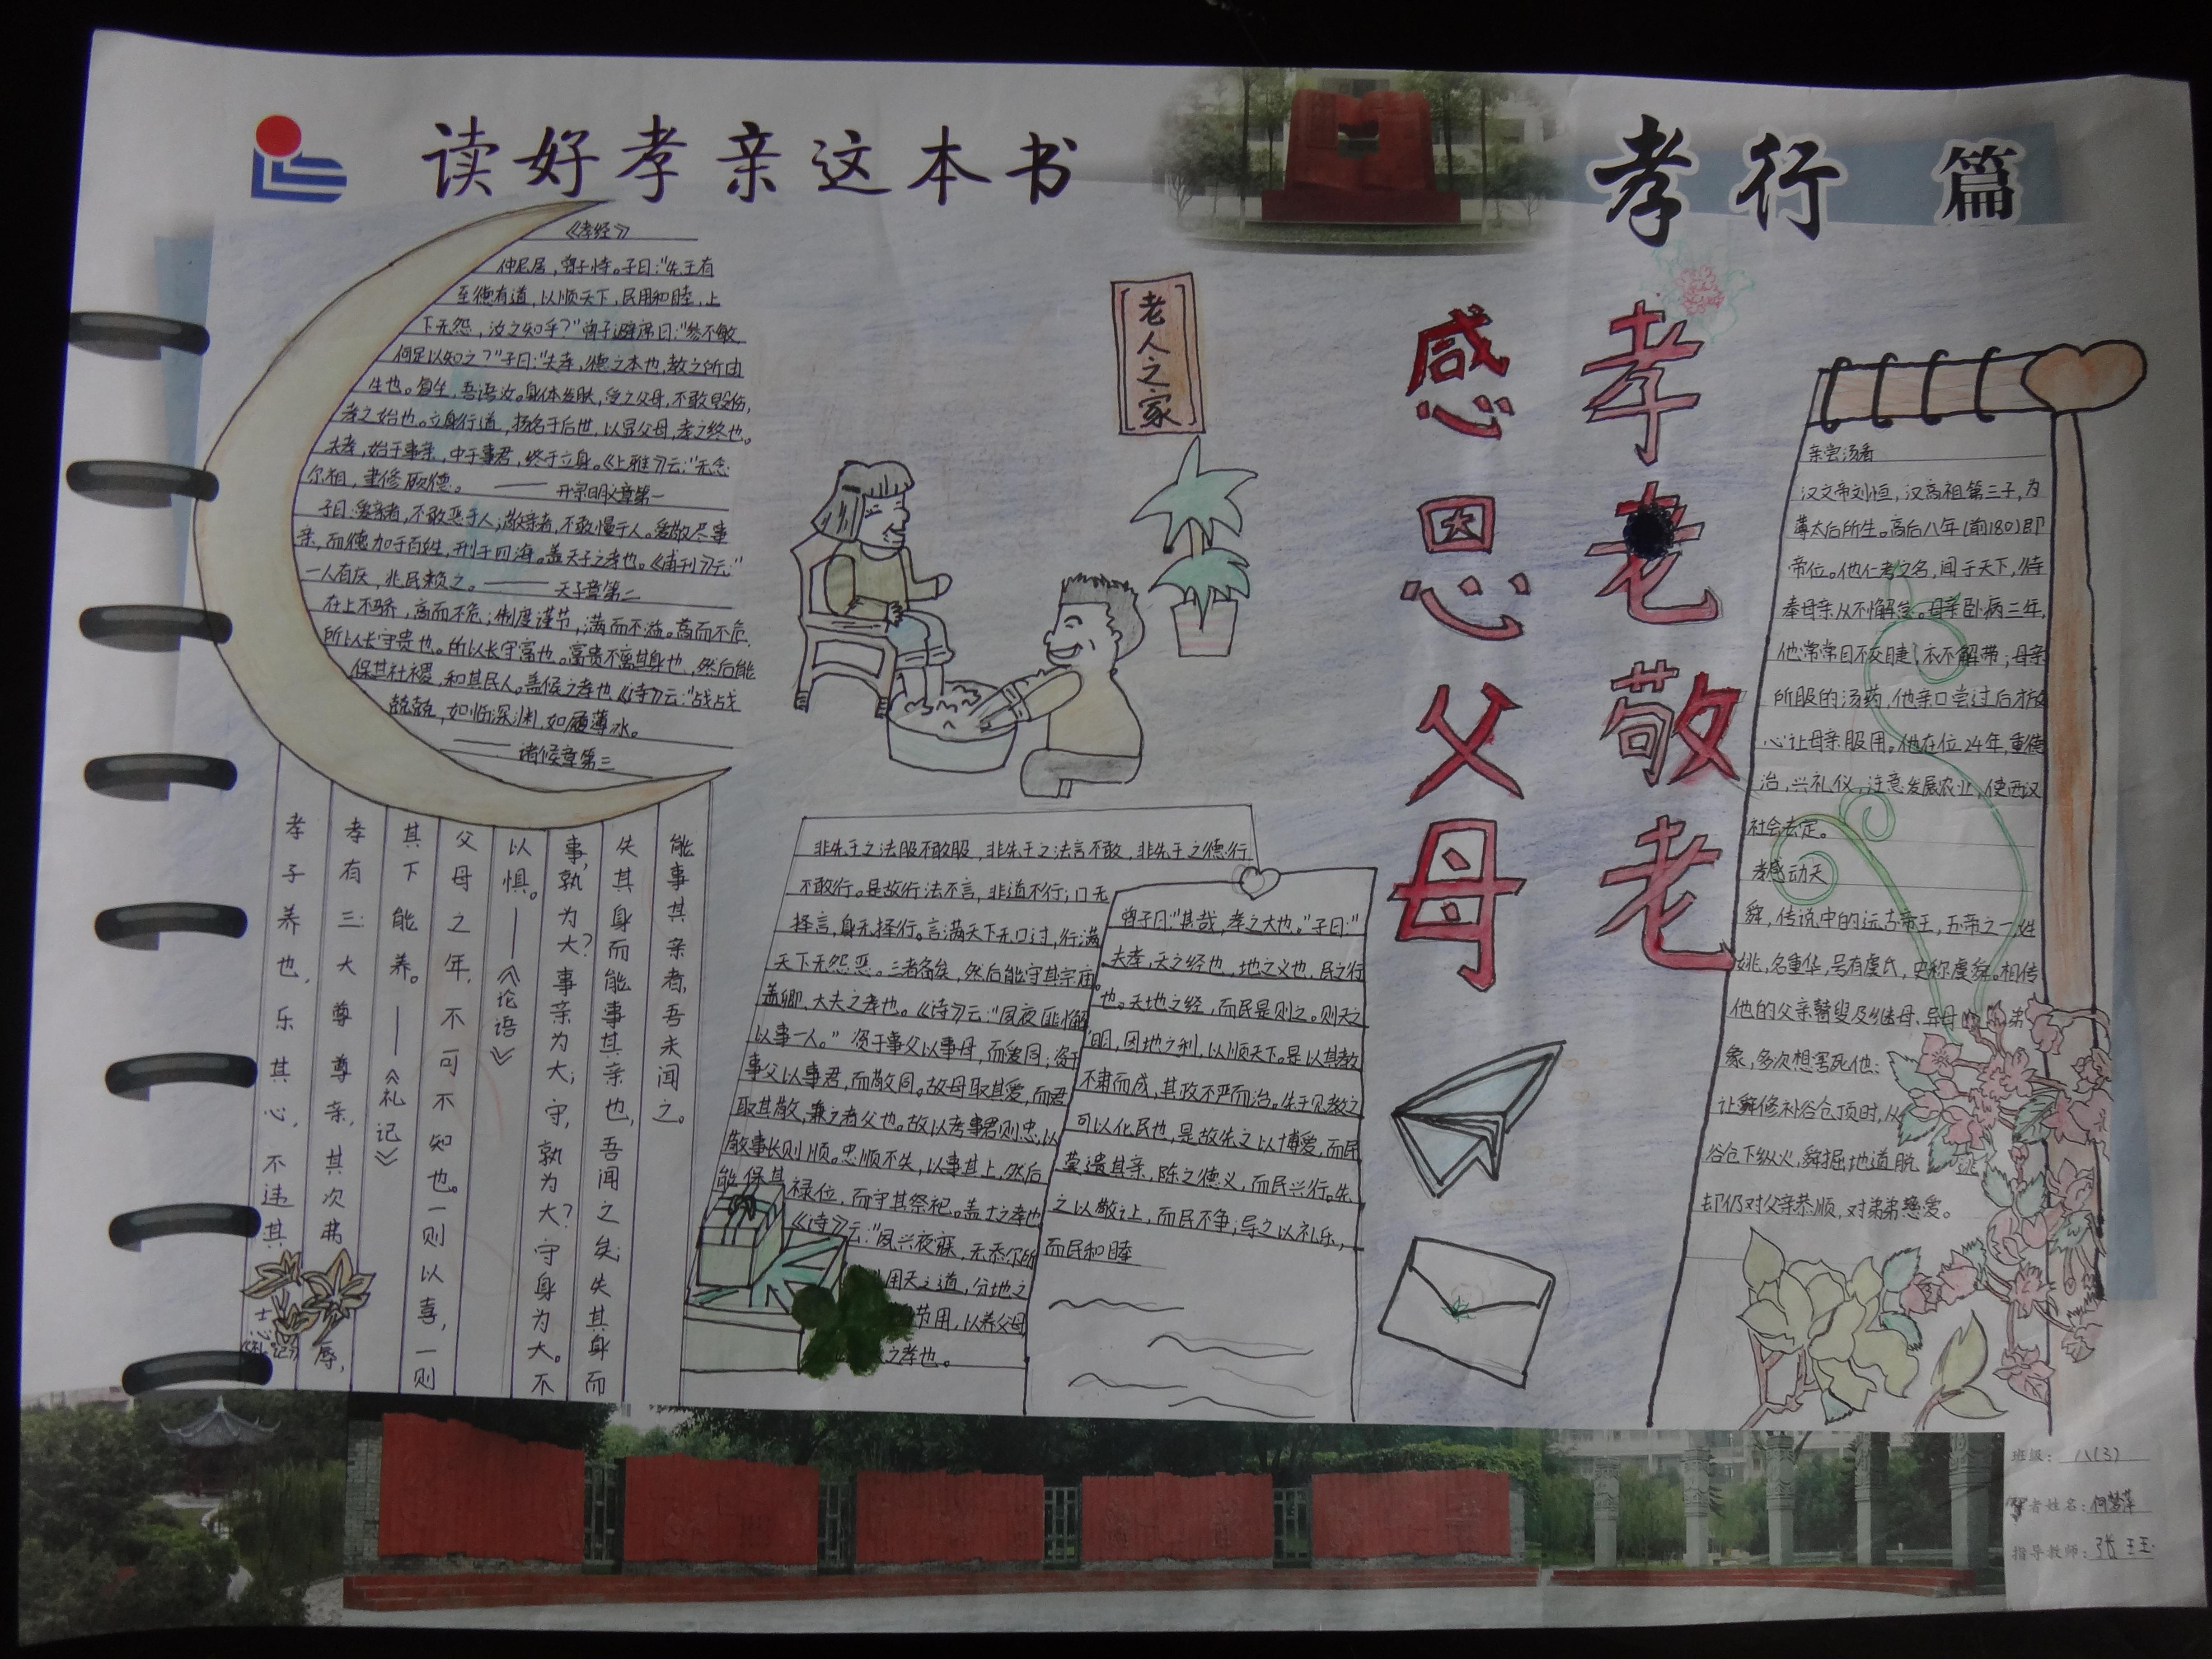 读好孝亲这本书
孝行 篇
《孝经》
仲尼居，曾子侍。子曰："先王有
至德有道，以顺天下，民用和睦，上
下无怨，汝之知乎？"曾子避席曰："参不敏
何足以知之？"子曰："夫孝，德之本也，教之所由
生也。复坐，吾语汝。身体发肤，受之父母，不敢毁伤，
孝之始也。立身行道，扬名于后世，以显父母，孝之终也。
夫孝，始于事亲，中于事君，终于立身。《上雅》云："无念
尔祖，聿修厥德。 —— 开宗明义章第一
子曰：爱亲者，不敢恶于人；敬亲者，不敢慢于人。爱敬尽事
亲，而德加于百姓，刑于四海。盖天子之孝也。《甫刊》云："
一人有庆，兆民赖之。 —— 天子章第二
在上不骄，高而不危；制度谨节，满而不溢。高而不危，
所以长守贵也。所以长守富也。富贵不离其身也，然后能
保其社稷，和其民人。盖侯之孝也《诗》云："战战
兢兢，如临深渊，如履薄冰。
—— 诸候章第三
能事其亲者，吾未闻之。
失其身而能事其亲也，吾闻之矣；失其身而
事，孰为大？事亲为大；守，孰为大？守身为大。不
以惧。——《论语》
父母之年，不可不知也。一则以喜，一则
其下能养。——《礼记》
孝有三：大尊尊亲，其次弗辱，
孝子养也，乐其心，不违其
《礼记》
老人之家
感恩父母
孝老敬老
非先王之法服不敢服，非先王之法言不敢，非先王之德行
不敢行。是故行法不言，非道不行；口无
择言，身无择行。言满天下无口过，行满
天下无怨恶。三者备矣，然后能守其宗庙。
盖卿、大夫之孝也。《诗》云："夙夜匪懈
以事一人。" 资于事父以事母，而爱同；资于
事父以事君，而敬同。故母取其爱，而君
取其敬，兼之者父也。故以孝事君则忠，以
敬事长则顺。忠顺不失，以事其上，然后
能保其禄位，而守其祭祀。盖士之孝也
《诗》云："夙兴夜寐，无忝尔所
用天之道，分地之
节用，以养父母
之孝也。
曾子曰："甚哉，孝之大也。"子曰："
夫孝，天之经也，地之义也，民之行
也。天地之经，而民是则之。则天之
明，因地之利，以顺天下。是以其教
不肃而成，其政不严而治。先王见教之
可以化民也，是故先之以博爱，而民
莫遗其亲，陈之德义，而民兴行。先
之以敬让，而民不争；导之以礼乐，
而民和睦
亲尝汤药
汉文帝刘恒，汉高祖第三子，为
薄太后所生。高后八年(前180)即
帝位。他仁孝之名，闻于天下，侍
奉母亲从不懈怠。母亲卧病三年，
他常常目不交睫，衣不解带；母亲
所服的汤药，他亲口尝过后才放
心让母亲服用。他在位24年，重德
治，兴礼仪，注意发展农业，使西汉
社会安定。
孝感动天
舜，传说中的远古帝王，五帝之一，姓
姚，名重华，号有虞氏，史称虞舜。相传
他的父亲瞽叟及继母、异母弟
象，多次想害死他：
让舜修补谷仓顶时，从
谷仓下纵火，舜掘地道脱
却仍对父亲恭顺，对弟弟慈爱。
班级：八(3)
者姓名：何
指导教师：张